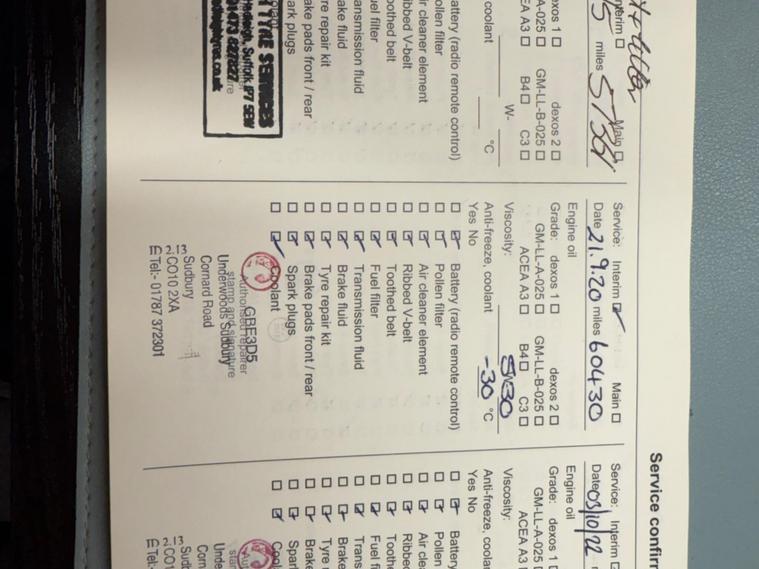 Service confir
Interim Main
miles
dexos 1 dexos 2
A-025 GM-LL-B-025
EA A3 B4 C3
W-
coolant °C
attery (radio remote control)
Pollen filter
ir cleaner element
ibbed V-belt
oothed belt
uel filter
ansmission fluid
ake fluid
yre repair kit
ake pads front / rear
park plugs
TYRE SERVICES
Hadleigh, Suffolk, IP7 5EW
01473 827827
Service: Interim Main
Date 21.9.20 miles 60430
Engine oil
Grade: dexos 1 dexos 2
GM-LL-A-025 GM-LL-B-025
ACEA A3 B4 C3
Viscosity: 5W30
Anti-freeze, coolant -30 °C
Yes No
Battery (radio remote control)
Pollen filter
Air cleaner element
Ribbed V-belt
Toothed belt
Fuel filter
Transmission fluid
Brake fluid
Tyre repair kit
Brake pads front / rear
Spark plugs
Coolant
GBE3D5
Authorised repairer
stamp and signature
Underwoods Sudbury
Cornard Road
Sudbury
CO10 2XA
Tel:- 01787 372301
Service: Interim
Date 03/10/22
Engine oil
Grade: dexos 1
GM-LL-A-025
ACEA A3
Viscosity:
Anti-freeze, coolan
Yes No
Battery
Pollen
Air cle
Ribbe
Tooth
Fuel fi
Trans
Brake
Tyre r
Brake
Spar
Cool
Unde
Corn
Sudb
CO1
Tel: